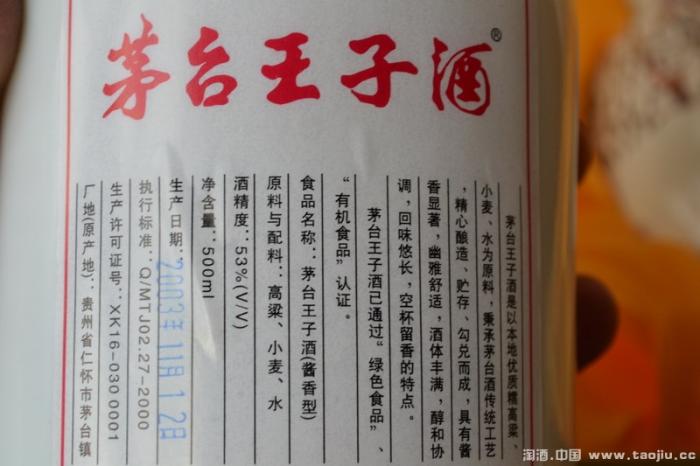 茅台王子酒®
茅台王子酒是以本地优质糯高粱、
小麦、水为原料，秉承茅台酒传统工艺
，精心酿造、贮存、勾兑而成，具有酱
香显著，幽雅舒适，酒体丰满，醇和协
调，回味悠长，空杯留香的特点。
茅台王子酒已通过“绿色食品”、
“有机食品”认证。
食品名称：茅台王子酒(酱香型)
原料与配料：高粱、小麦、水
酒精度：53%(V/V)
净含量：500ml
生产日期：2003年11月12日
执行标准：Q/MTJ02.27-2000
生产许可证号：XK16-030 0001
厂地(原产地)：贵州省仁怀市茅台镇
淘酒.中国 www.taojiu.cc